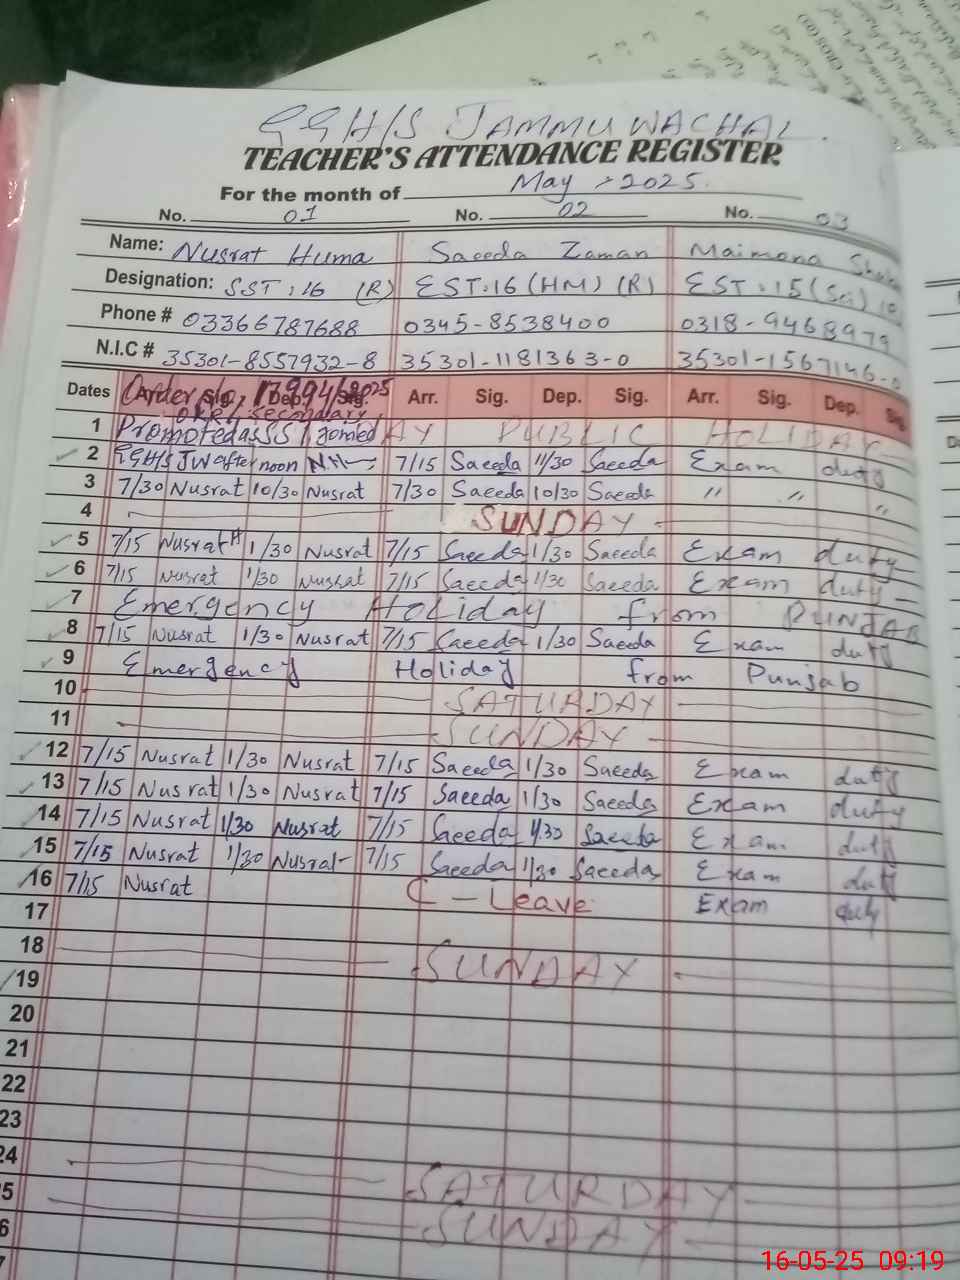 GGH/S JAMMU WACHAL.
TEACHER'S ATTENDANCE REGISTER
For the month of May > 2025.
No. 01 No. 02 No. 03
Name: Nusrat Huma Saeeda Zaman Maimona
Designation: SST:16 (R) EST:16 (HM) (R) EST:15 (Sci)
Phone # 03366787688 0345-8538400 0318-9468979
N.I.C # 35301-8557932-8 35301-1181363-0 35301-1567146-0
Dates Order Sig. Dep. Sig. Arr. Sig. Dep. Sig. Arr. Sig. Dep. Sig
secondary
1 Promoted as SST joined AY PUBLIC HOLIDAY
2 GGH/S JW afternoon NH 7/15 Saeeda 11/30 Saeeda Exam duty
3 7/30 Nusrat 10/30 Nusrat 7/30 Saeeda 10/30 Saeeda " " "
4 SUNDAY
5 7/15 Nusrat 1/30 Nusrat 7/15 Saeeda 1/30 Saeeda Exam duty
6 7/15 Nusrat 1/30 Nusrat 7/15 Saeeda 1/30 Saeeda Exam duty
7 Emergency Holiday from PUNJAB
8 7/15 Nusrat 1/30 Nusrat 7/15 Saeeda 1/30 Saeeda Exam duty
9 Emergency Holiday from Punjab
10 SATURDAY
11 SUNDAY
12 7/15 Nusrat 1/30 Nusrat 7/15 Saeeda 1/30 Saeeda Exam duty
13 7/15 Nusrat 1/30 Nusrat 7/15 Saeeda 1/30 Saeeda Exam duty
14 7/15 Nusrat 1/30 Nusrat 7/15 Saeeda 1/30 Saeeda Exam duty
15 7/15 Nusrat 1/30 Nusrat 7/15 Saeeda 1/30 Saeeda Exam duty
16 7/15 Nusrat C - Leave Exam duty
17
18 SUNDAY
19
20
21
22
23
24 SATURDAY
5 SUNDAY
6
16-05-25 09:19